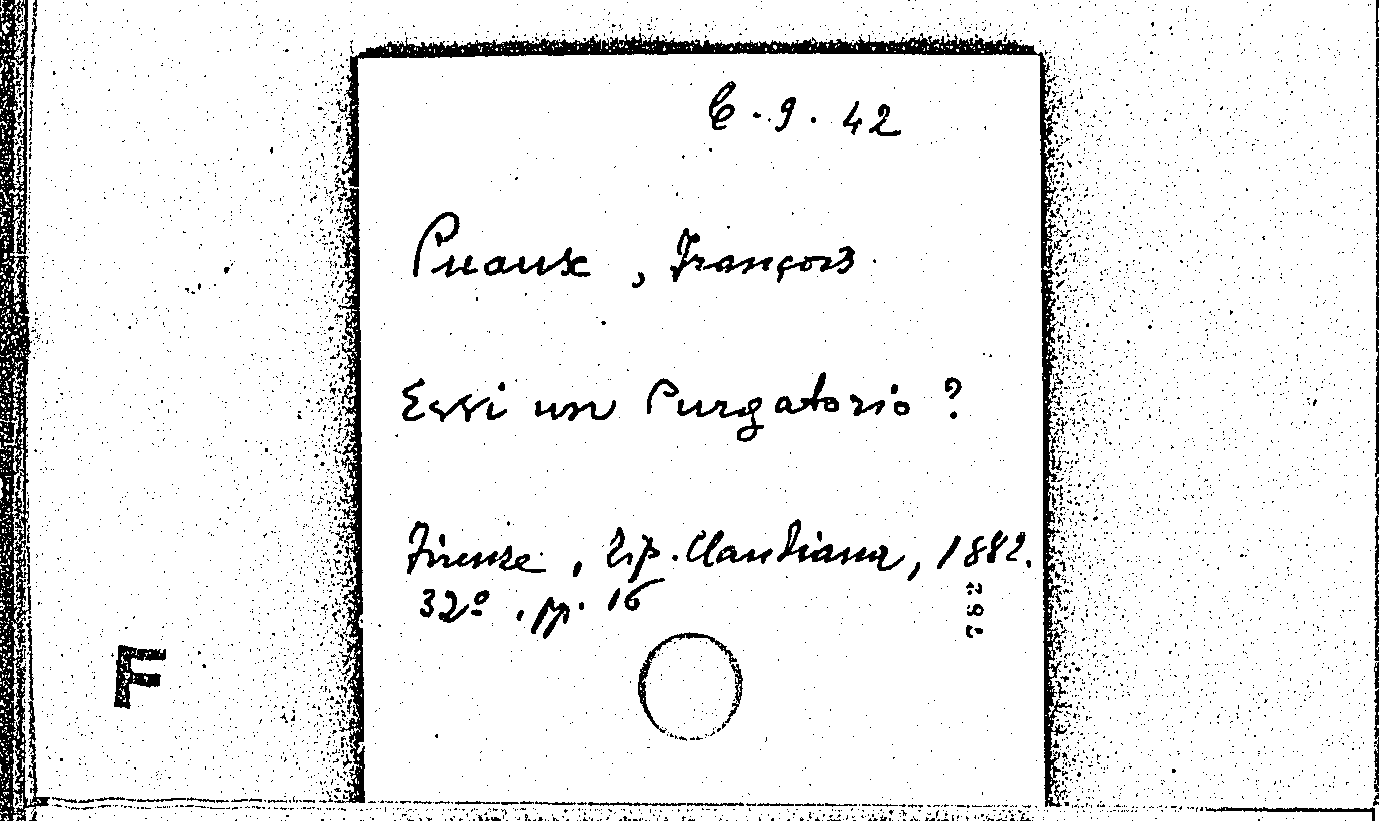 C. 9. 42
Puaux, François
Essi un Purgatorio?
Firenze, Tip. Claudiana, 1882.
32º. pp. 16
782
F